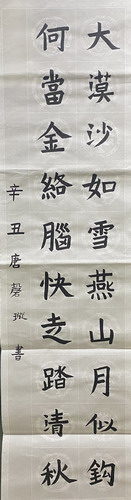 大漠沙如雪燕山月似鈎
何當金絡腦快走踏清秋
辛丑唐磬瑽書